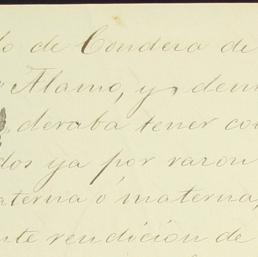 lo de Condesa de
Alamo, y demas
deraba tener co
dos ya por razon
aterna ó materna,
nte rendicion de